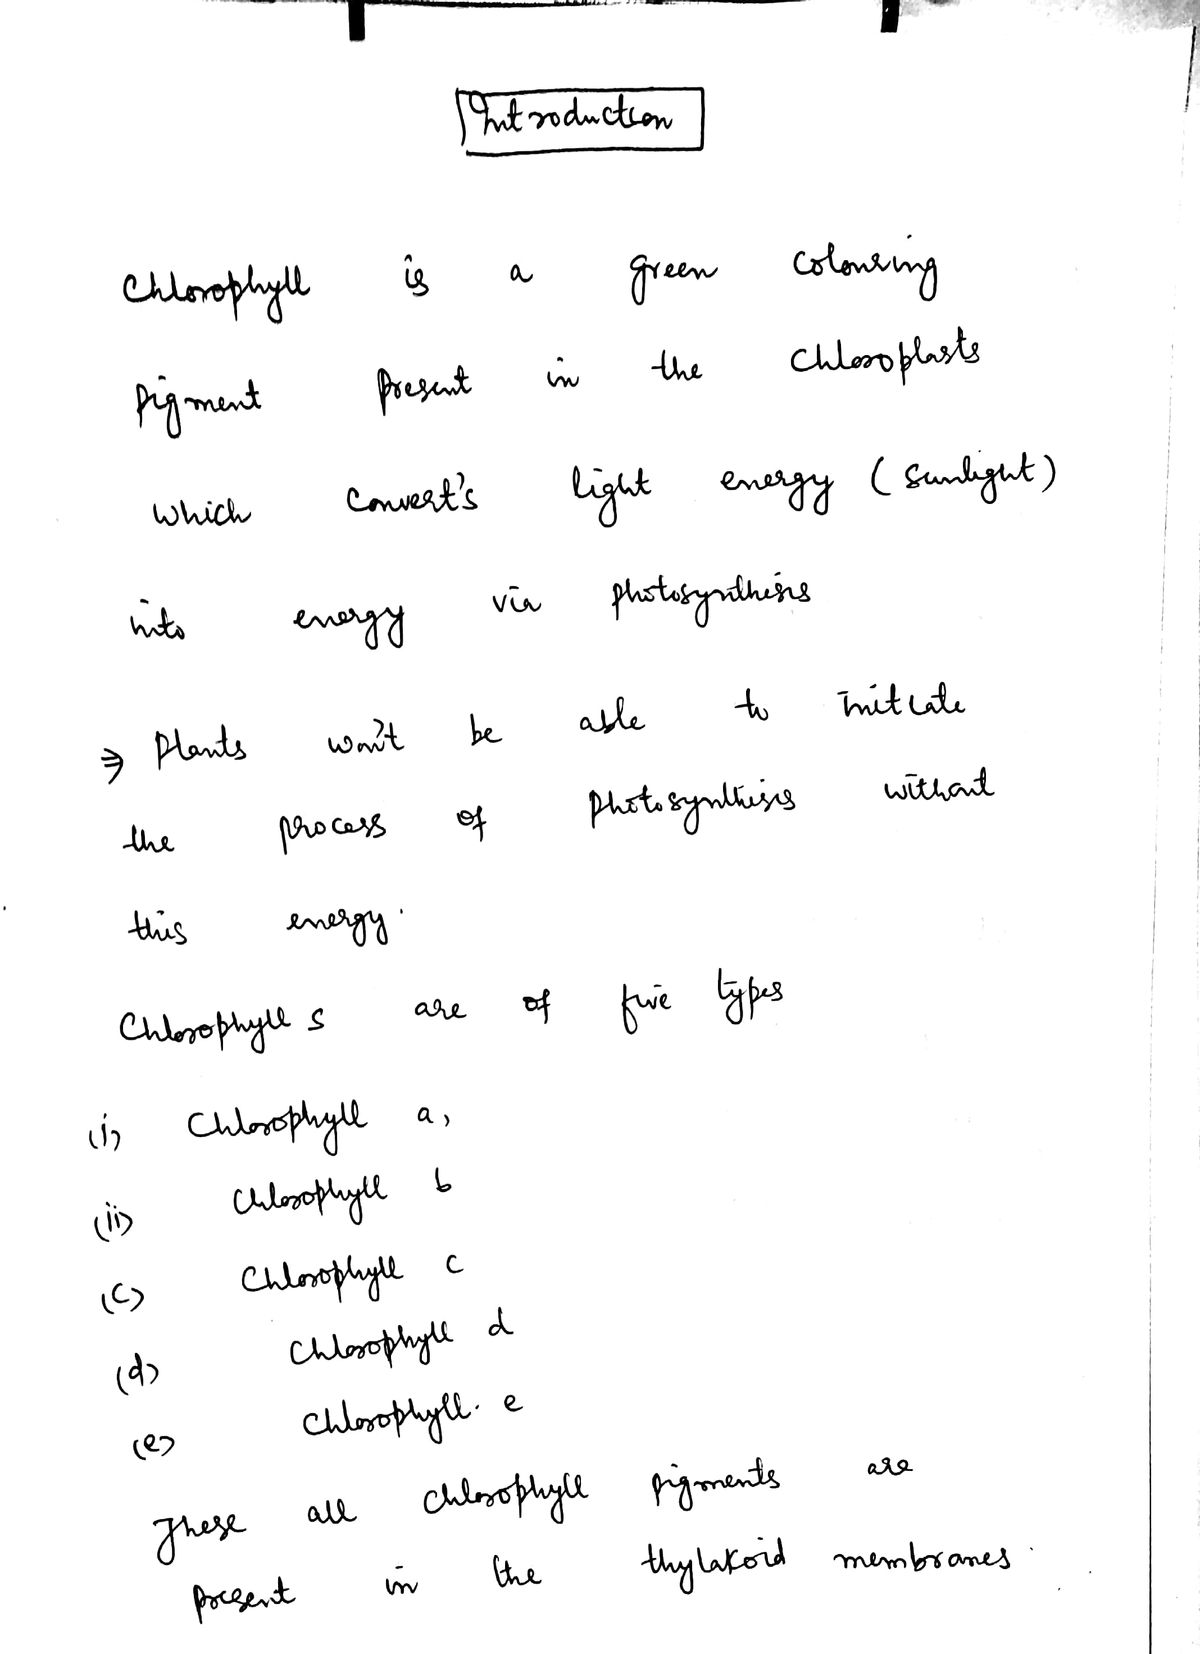 Introduction
Chlorophyll is a green colouring
pigment present in the chloroplasts
which convert's light energy (sunlight)
into energy via photosynthesis
⇒ Plants won't be able to initiate
the process of photosynthesis without
this energy.
Chlorophylls are of five types
(i) Chlorophyll a,
(ii) Chlorophyll b
(c) Chlorophyll c
(d) Chlorophyll d
(e) Chlorophyll. e
These all chlorophyll pigments are
present in the thylakoid membranes.